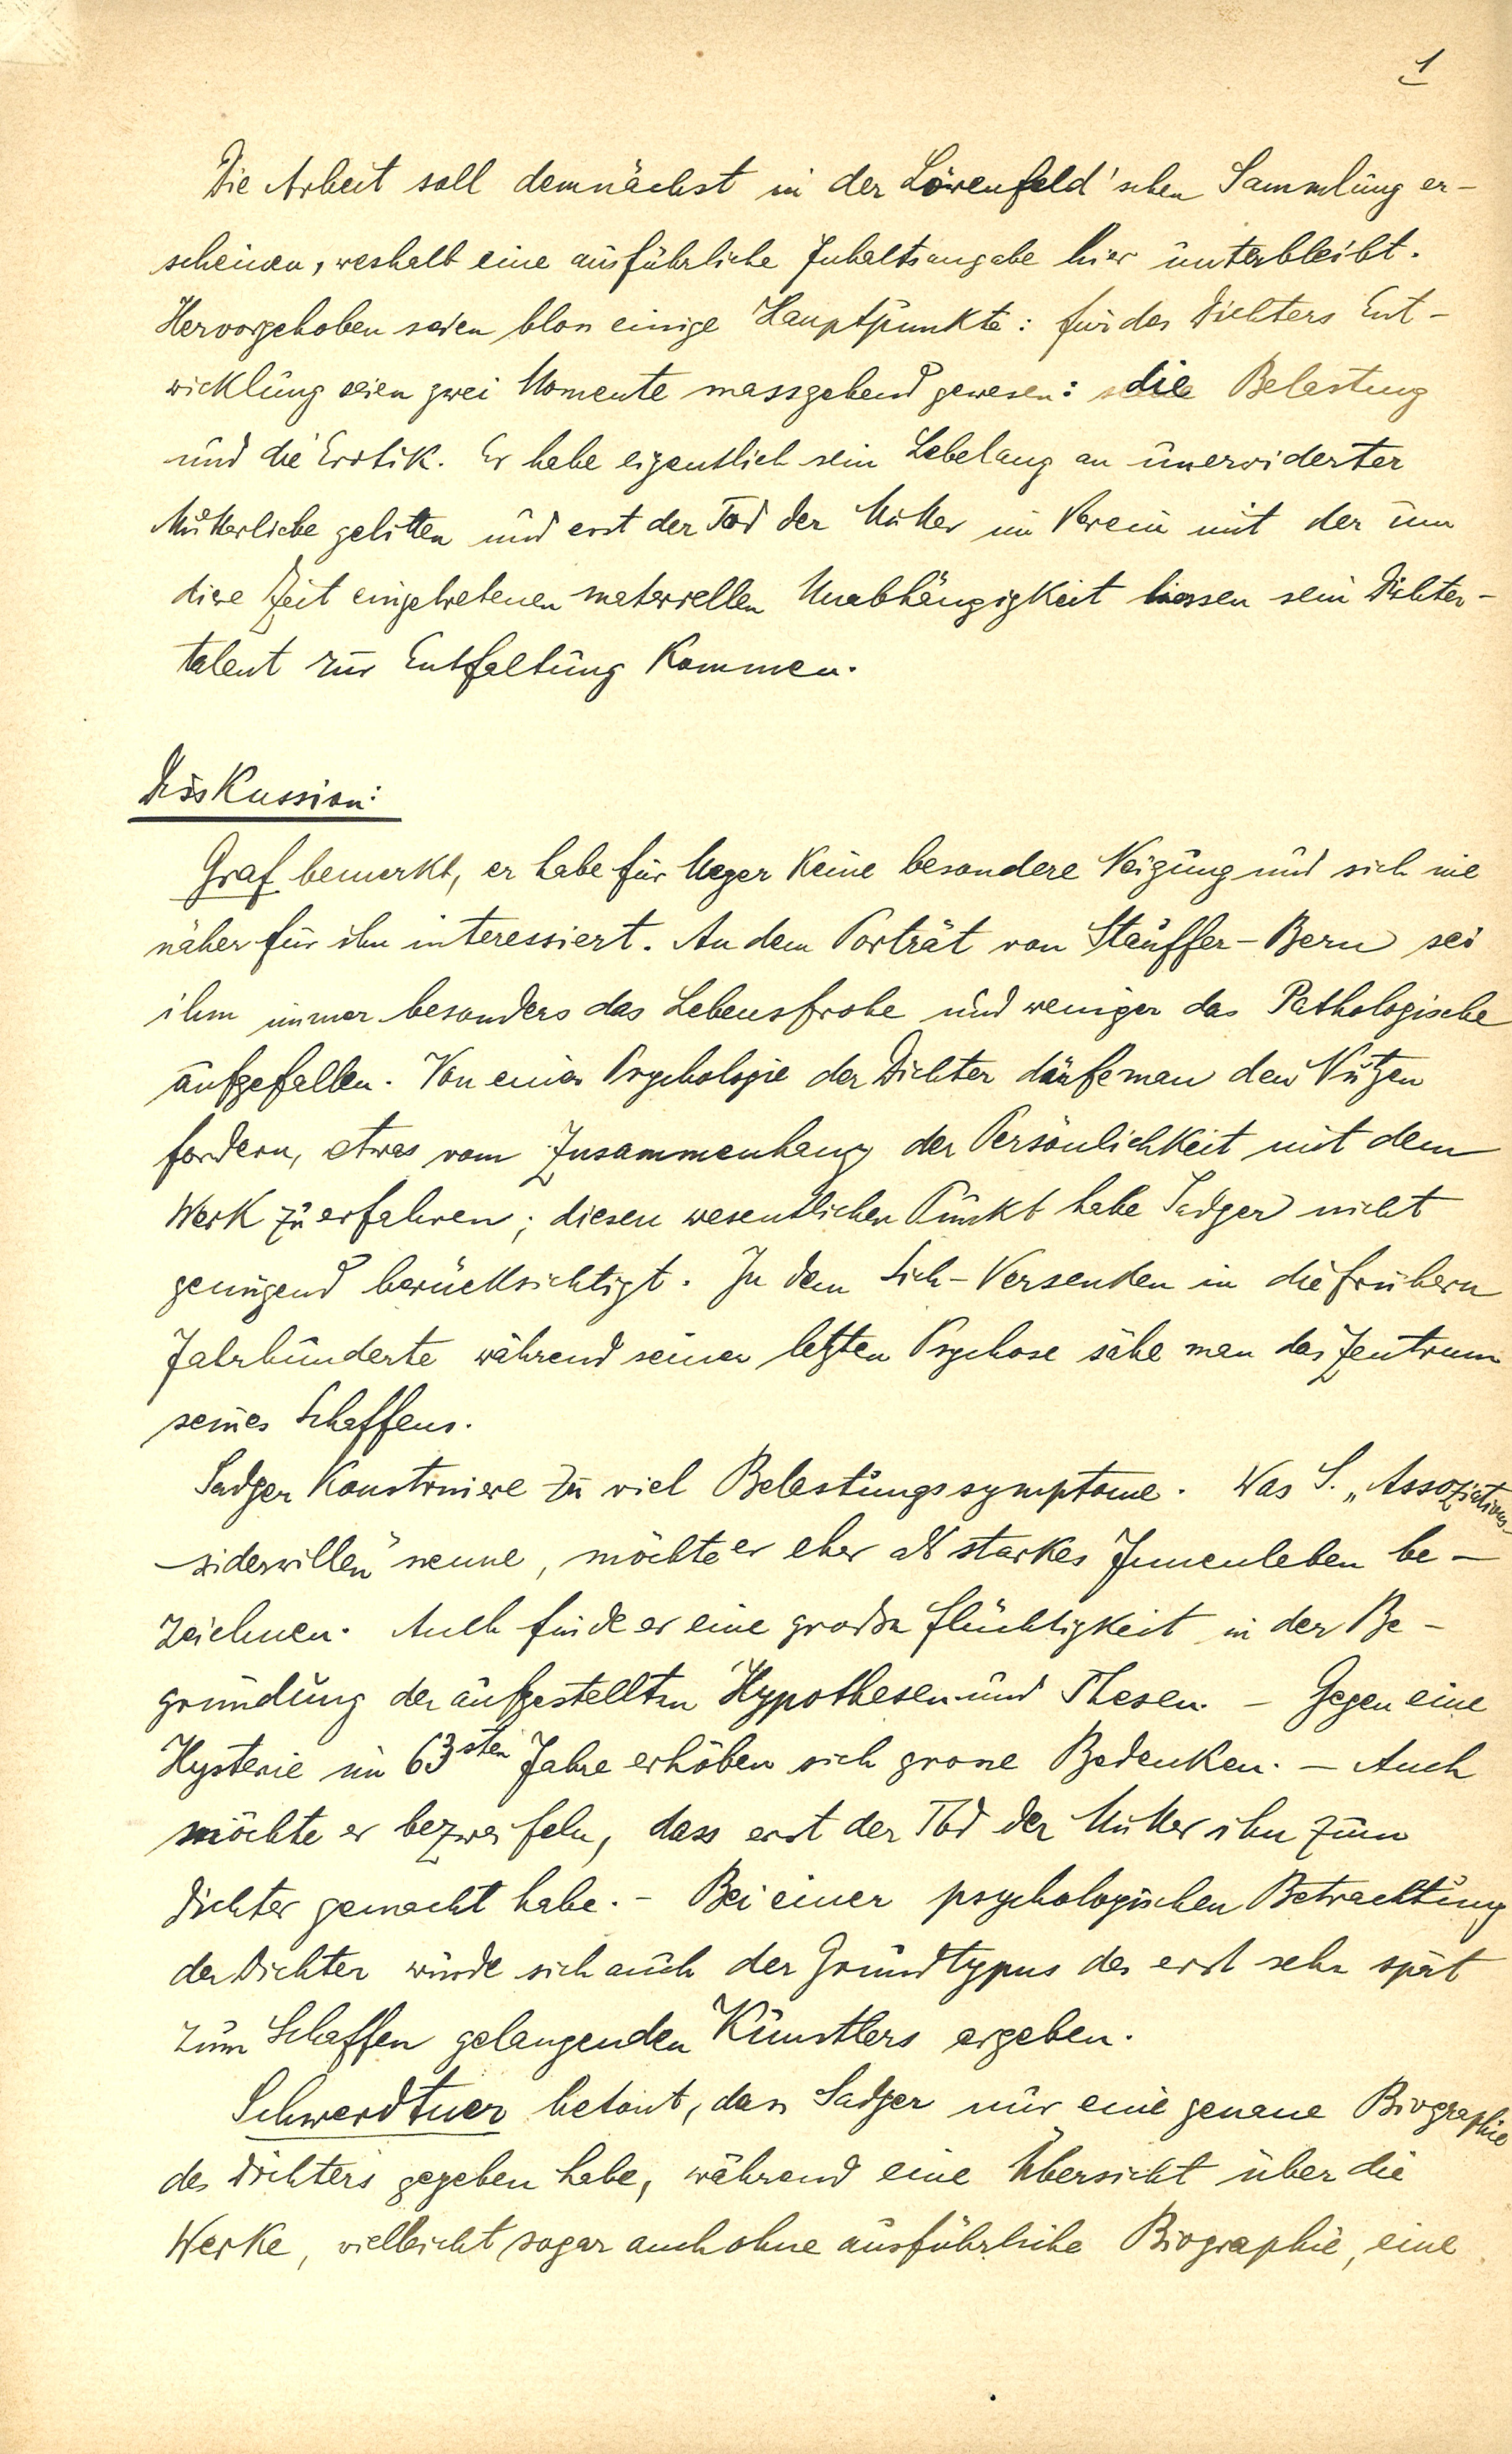 1
Die Arbeit soll demnächst in der Löwenfeld'schen Sammlung er-
scheinen, weshalb eine ausführliche Inhaltsangabe hier unterbleibt.
Hervorgehoben seien blos einige Hauptpunkte: für des Dichters Ent-
wicklung seien zwei Momente massgebend gewesen: die Belastung
und die Erotik. Er habe eigentlich sein Lebelang an unerwiderter
Mutterliebe gelitten und erst der Tod der Mutter im Verein mit der um
diese Zeit eingetretenen materiellen Unabhängigkeit liessen sein Dichter-
talent zur Entfaltung kommen.
Diskussion:
Graf bemerkt, er habe für Meyer keine besondere Neigung und sich nie
näher für ihn interessiert. An dem Porträt von Stauffer-Bern sei
ihm immer besonders das Lebensfrohe und weniger das Pathologische
aufgefallen. Von einer Psychologie der Dichter dürfe man den Nutzen
fordern, etwas vom Zusammenhang der Persönlichkeit mit dem
Werk zu erfahren; diesen wesentlichen Punkt habe Sadger nicht
genügend berücksichtigt. In dem Sich-Versenken in die frühern
Jahrhunderte während seiner letzten Psychose sähe man das Zentrum
seines Schaffens.
Sadger konstruiere zu viel Belastungssymptome. Was S. „Assoziations-
widerwillen" nenne, möchte er eher als starkes Innenleben be-
zeichnen. Auch finde er eine große Flüchtigkeit in der Be-
gründung der aufgestellten Hypothesen und Thesen. – Gegen eine
Hysterie im 63sten Jahre erhöben sich grosse Bedenken. – Auch
möchte er bezweifeln, dass erst der Tod der Mutter ihn zum
Dichter gemacht habe. – Bei einer psychologischen Betrachtung
der Dichter würde sich auch der Grundtypus des erst sehr spät
zum Schaffen gelangenden Künstlers ergeben.
Schwerdtner betont, dass Sadger nur eine genaue Biographie
des Dichters gegeben habe, während eine Übersicht über die
Werke, vielleicht sogar auch ohne ausführliche Biographie, eine